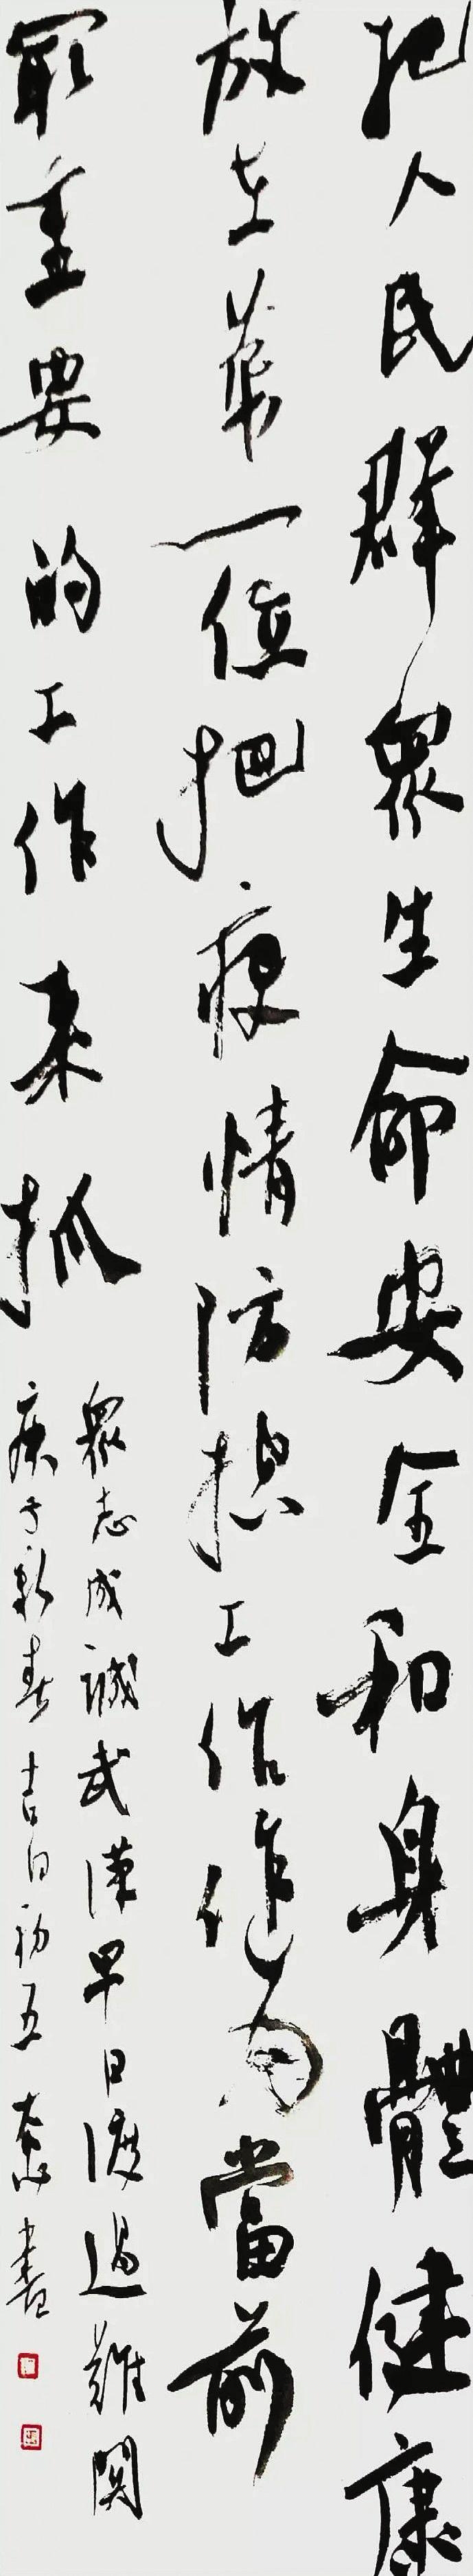 把人民群眾生命安全和身體健康
放在第一位把疫情防控工作作为當前
最重要的工作来抓
眾志成誠武漢早日渡過難関
庚子新春吉日初五 書